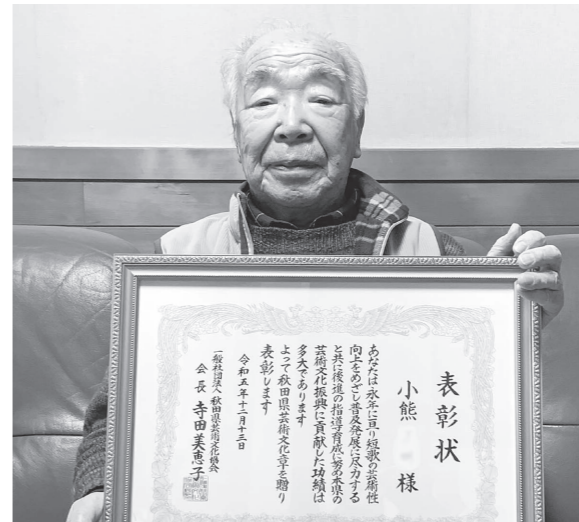 表彰状
小熊 様
あなたは永年に亘り短歌の芸術性
向上をめざし普及発展に尽力する
と共に後進の指導育成に努め本県の
芸術文化振興に貢献した功績は
多大であります
よって秋田県芸術文化章を贈り
表彰します
令和五年十二月十三日
一般社団法人 秋田県芸術文化協会
会長 寺田美恵子